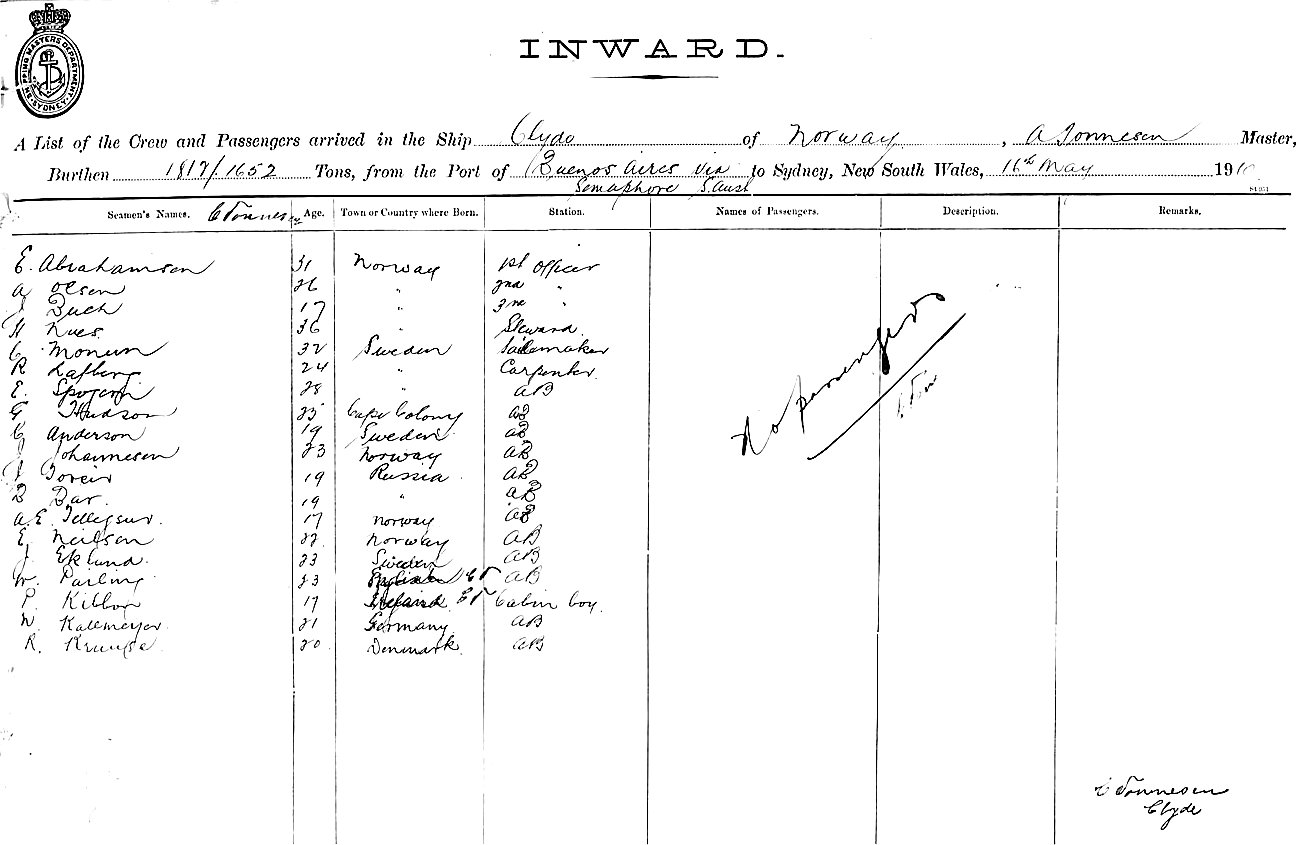 SHIPPING MASTERS DEPARTMENT SYDNEY
INWARD.
A List of the Crew and Passengers arrived in the Ship Clyde of Norway, A Tonnesen Master,
Burthen 1817/1652 Tons, from the Port of Buenos Aires via to Sydney, New South Wales, 16th May 1910
Semaphore S. Aust
Seamen's Names. C Tonnesen Age. Town or Country where Born. Station. Names of Passengers. Description. Remarks.
E. Abrahamsen 31 Norway 1st Officer
A Olsen 26 " 2nd "
Buch 17 " 3rd "
H 36 " Steward
C Monum 32 Sweden Sailmaker
R 24 " Carpenter
E. 28 " AB
G Hudson 25 Cape Colony AB
C Anderson 19 Sweden AB
J Johannesen 23 Norway AB
19 Russia AB
B Bar 19 " AB
A. E. 17 Norway AB
E Neilsen 22 Norway AB
J. Eklund 23 Sweden AB
W. Parling 23 CT AB
P. 17 Ireland CT Cabin boy
W Kallmeyer 21 Germany AB
R. Kruuse 20 Denmark AB
No passengers
C Ton
C Tonnesen
Clyde